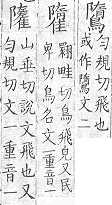 匀規切飛也
或作文二
翾畦切鳥飛皃又民
卑切鳥名文一重音一
山垂切說文飛也又
匀規切文一重音一